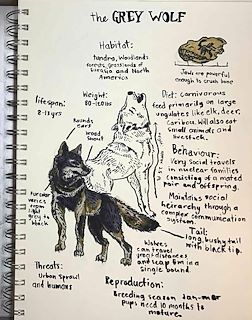 the GREY WOLF
Habitat:
tundra, Woodlands
forests, Grasslands of
Eurasia and North
America
Jaws are powerful
enough to crush bone
Lifespan:
8-13 yrs
Weight:
80-120lbs
Rounds
ears
broad snout
Diet: carnivorous
feed primarily on large
ungulates like elk, deer,
caribou. Will also eat
small animals and
livestock.
Behaviour:
Very social travels
in nuclear families
consisting of a mated
pair and offspring.
Maintains social
heirarchy through a
complex communication
system.
Fur color
varies from
light
grey to
black
Tail:
long, bushy tail
with black tip
Wolves
can travel
great distances
and leap 5m in a
single bound
Threats:
Urban Sprawl
and humans
Reproduction:
breeding season Jan-mar
pups need 10 months to
mature.